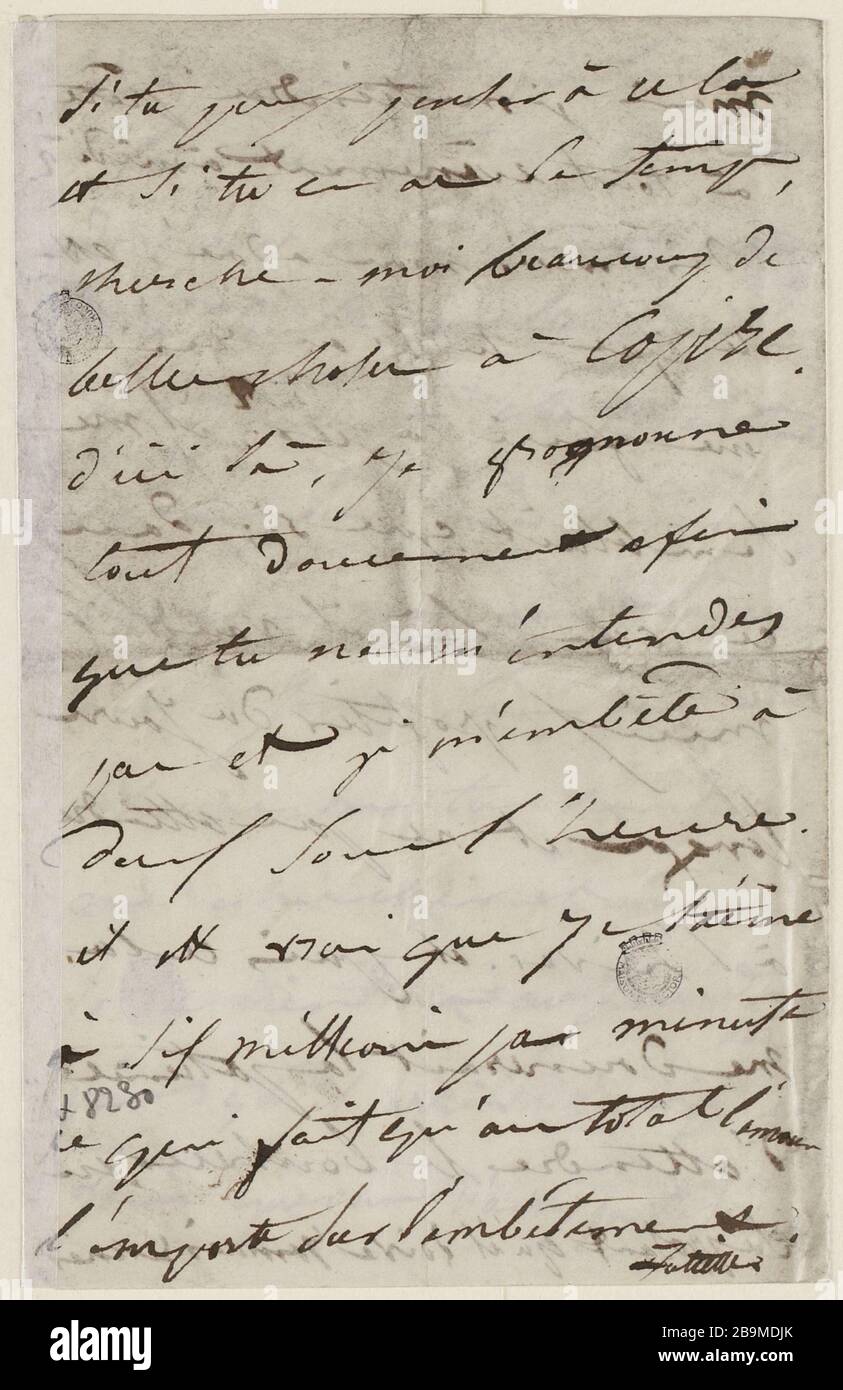 Si tu peux penser à cela
et si tu en as le temps,
cherche-moi beaucoup de
belles choses à Copire.
d'ici là, je grognonne
tout doucement afin
que tu ne m'entendes
pas et je m'embête à
deux sous l'heure.
il est vrai que je t'aime
à six millions par minute
ce qui fait qu'au total l'amour
l'emporte sur l'embêtement.
Juliette
α 8290
a
alamy
Image ID: 2B9MDJK
www.alamy.com